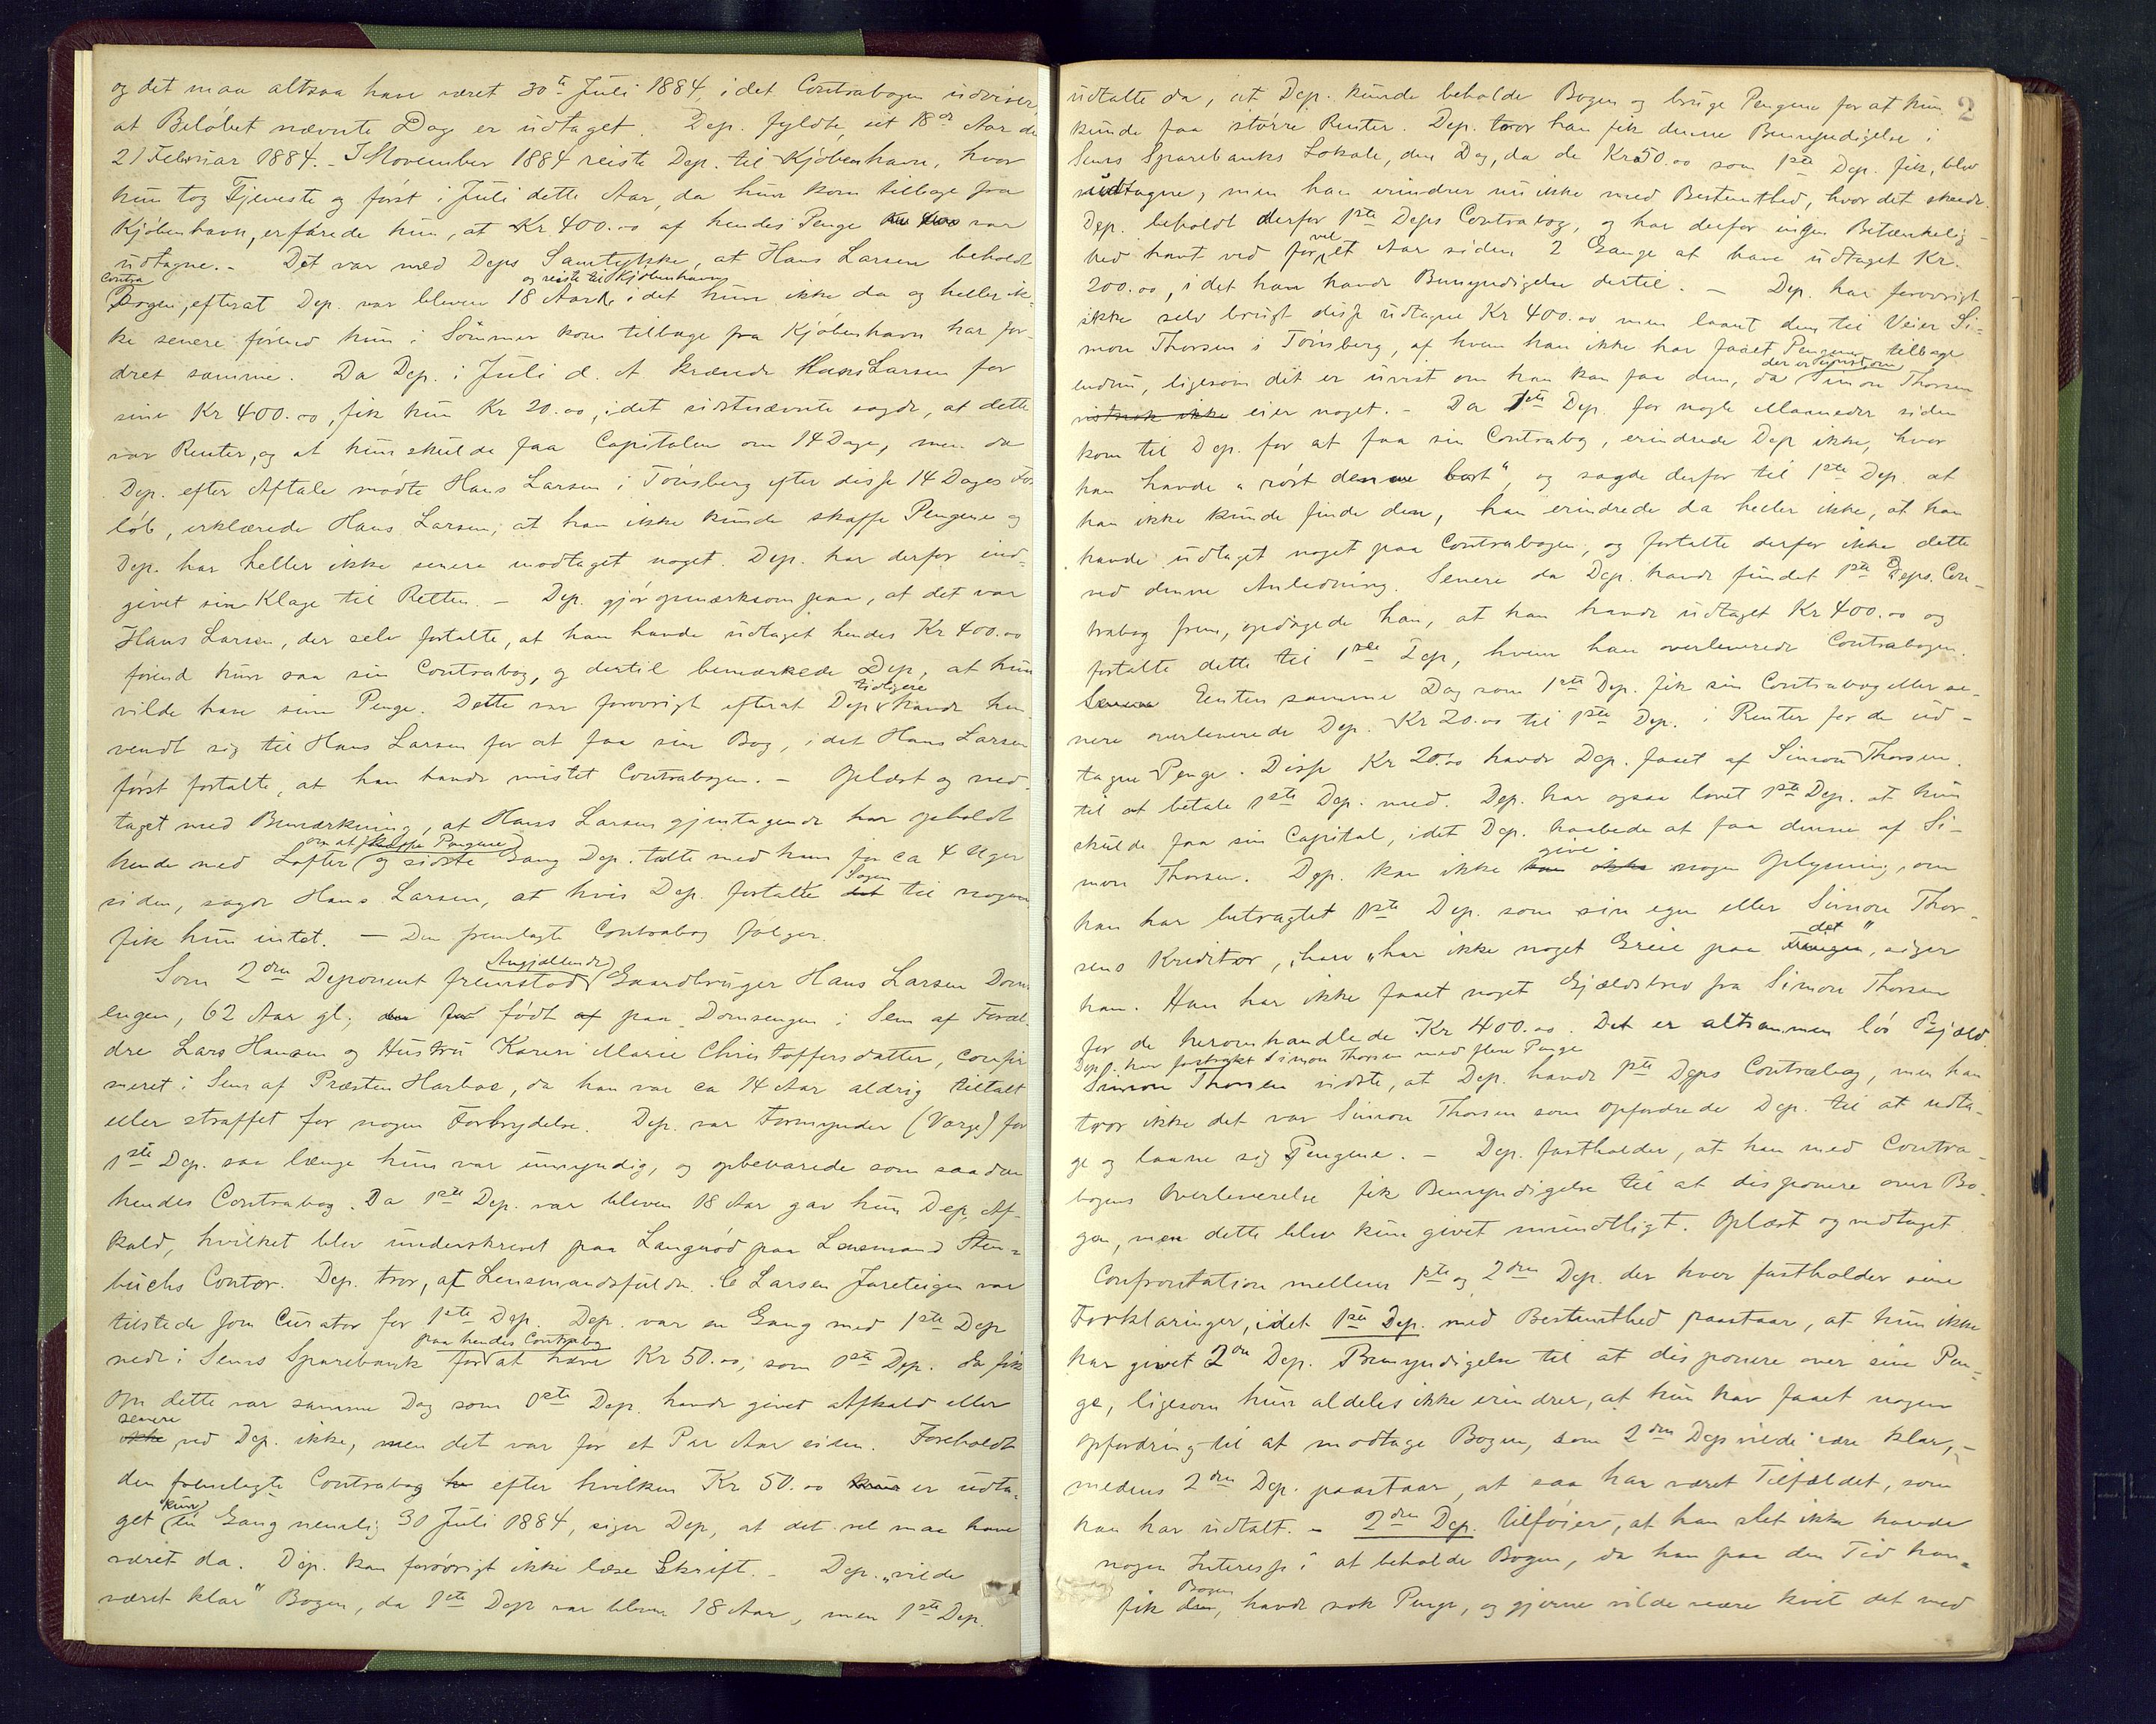 og det maa altsaa have været 30te Juli 1884, idet Contrabogen udviser
at Beløbet nævnte Dag er udtaget. Dep. fyldte sit 18de Aar den
21 Februar 1884. - I November 1884 reiste Dep. til Kjøbenhavn, hvor
hun tog Tjeneste og først i Juli dette Aar, da hun kom tilbage fra
Kjøbenhavn, erfarede hun, at Kr 400.00 af hendes Penge var
udtagne. - Det var med Deps Samtykke, at Hans Larsen beholdt
Contra og reiste til Kjøbenhavn
Bogen, efterat Dep. var bleven 18 Aar, idet hun ikke da og heller ik-
ke senere førend hun i Sommer kom tilbage fra Kjøbenhavn har for-
dret samme. Da Dep. i Juli d. A krævede Hans Larsen for
sine Kr 400.00, fik hun Kr 20.00, idet sidstnævnte sagde, at dette
var Renter, og at hun skulde faa Capitalen om 14 Dage, men da
Dep. efter Aftale mødte Hans Larsen i Tønsberg efter disse 14 Dages For
løb, erklærede Hans Larsen, at han ikke kunde skaffe Pengene og
Dep. har heller ikke senere modtaget noget. Dep. har derfor ind-
givet sin Klage til Retten. - Dep. gjør opmærksom paa, at det var
Hans Larsen, der selv fortalte, at han havde udtaget hendes Kr 400.00
førend hun saa sin Contrabog, og dertil bemærkede Dep, at hun
tidligere
vilde have sine Penge. Dette var forøvrigt efterat Dep havde hen
vendt sig til Hans Larsen for at faa sin Bog, idet Hans Larsen
først fortalte, at han havde mistet Contrabogen. - Oplæst og ved
taget med Bemærkning, at Hans Larsen gjentagende har opholdt
om at skaffe Pengene
hende med Løfter og sidste Gang Dep. talte med ham for ca 4 Uger
Sagen
siden, sagde Hans Larsen, at hvis Dep. fortalte det til nogen
fik hun intet. - Den fremlagte Contrabog følger.
Angjældende
Som 2den Deponent fremstod Gaardbruger Hans Larsen Doms
engen, 62 Aar gl, født paa Domsengen i Sem af Foræl
dre Lars Hansen og Hustru Karen Marie Christoffersdatter, confir
meret i Sem af Præsten Harboe, da han var ca 14 Aar aldrig tiltalt
eller straffet for nogen Forbrydelse. Dep. var Formynder (Værge) for
1ste Dep. saa længe hun var umyndig, og opbevarede som saadan
hendes Contrabog. Da 1ste Dep. var bleven 18 Aar gav hun Dep. Af-
kald, hvilket blev underskrevet paa Langnød paa Lensmand Sten-
buchs Contor. Dep. tror, at Lensmandsfuldm. C Larsen Jareteigen var
tilstede som Curator for 1ste Dep. Dep. var en Gang med 1ste Dep
paa hendes Contrabog
nede i Sems Sparebank for at hæve Kr 50.00, som 1ste Dep. da fik
Om dette var samme Dag som 1ste Dep. havde givet Afkald eller
senere
ikke ved Dep. ikke, men det var for et Par Aar siden. Foreholdt
den fremlagte Contrabog efter hvilken Kr 50.00 er udta-
kun
get en Gang nemlig 30 Juli 1884, siger Dep, at det vel maa have
været da. Dep. kan forøvrigt ikke læse Skrift. - Dep. "vilde
været klar" Bogen, da 1ste Dep var bleven 18 Aar, men 1ste Dep.
2
udtalte da, at Dep. kunde beholde Bogen og bruge Pengene for at hun
kunde faa større Renter. Dep. tror han fik denne Bemyndigelse i
Sems Sparebanks Lokale, den Dag, da de Kr 50.00 som 1ste Dep. fik, blev
udtagne, men han erindrer nu ikke med Bestemthed, hvor det skede.
Dep. beholdt derfor 1ste Deps Contrabog, og har derfor ingen Betænkelig-
vel
hed havt ved for et Aar siden 2 Gange at have udtaget Kr.
200.00, idet han havde Bemyndigelse dertil. - Dep. har forøvrigt
ikke selv brugt disse udtagne Kr 400.00 men laant dem til Veier Si-
mon Thorsen i Tønsberg, af hvem han ikke har faaet Pengene tilbage
der er uvist om
endnu, ligesom det er uvist om han kan faa dem, da Simon Thorsen
vistnok ikke eier noget. - Da 1ste Dep. for nogle Maaneder siden
kom til Dep. for at faa sin Contrabog, erindrede Dep ikke, hvor
han havde "røst denne bort", og sagde derfor til 1ste Dep. at
han ikke kunde finde den, han erindrede da heller ikke, at han
havde udtaget noget paa Contrabogen, og fortalte derfor ikke dette
ved denne Anledning. Senere da Dep. havde fundet 1ste Deps. Con-
trabog frem, opdagede han, at han havde udtaget Kr 400.00 og
fortalte dette til 1ste Dep, hvem han overleverede Contrabogen.
Senere Enten samme Dag som 1ste Dep. fik sin Contrabog eller se-
nere overleverede Dep. Kr 20.00 til 1ste Dep. i Renter for de ud-
tagne Penge. Disse Kr 20.00 havde Dep. faaet af Simon Thorsen.
til at betale 1ste Dep. med. Dep. har ogsaa lovet 1ste Dep. at hun
skulde faa sin Capital, idet Dep. haabede at faa denne af Si-
give
mon Thorsen. Dep. kan ikke nogen Oplysning, om
han har betragtet 1ste Dep. som sin egen eller Simon Thor-
det
sens Kreditor, han "har ikke noget Greie paa", siger
han. Han har ikke faaet noget Gjældsbrev fra Simon Thorsen
for de heromhandlede Kr 400.00. Det er altsammen løs Gjæld.
Dep. har forstrakt Simon Thorsen med flere Penge
Simon Thorsen vidste, at Dep. havde 1ste Deps Contrabog, men han
tror ikke det var Simon Thorsen som opfordrede Dep. til at udta-
ge og laane sig Pengene. - Dep. fastholder, at han med Contra-
bogens Overleverelse fik Bemyndigelse til at disponere over Bo-
gen, men dette blev kun givet mundtligt. Oplæst og vedtaget
Confrontation mellem 1ste og 2den Dep. der hver fastholder sine
Forklaringer, idet 1ste Dep. med Bestemthed paastaar, at hun ikke
har givet 2den Dep. Bemyndigelse til at disponere over sine Pen-
ge, ligesom hun aldeles ikke erindrer, at hun har faaet nogen
Opfordring til at modtage Bogen, som 2den Dep vilde være klar, -
medens 2den Dep. paastaar, at saa har været Tilfældet, som
han har udtalt. - 2den Dep. tilføier, at han slet ikke havde
nogen Interesse i at beholde Bogen, da han paa den Tid han
Bogen
fik den, havde nok Penge, og gjerne vilde være kvit det med